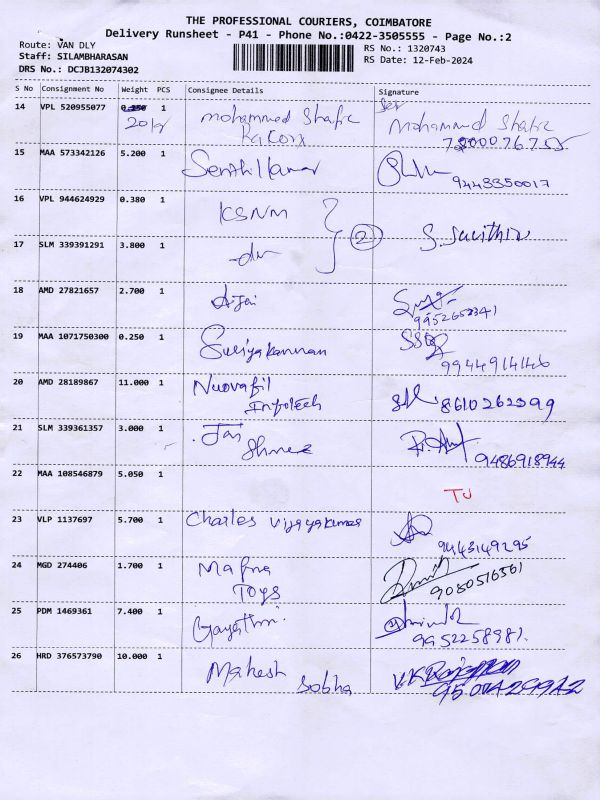 THE PROFESSIONAL COURIERS, COIMBATORE
Delivery Runsheet - P41 - Phone No.:0422-3505555 - Page No.:2
Route: VAN DLY
RS No.: 1320743
Staff: SILAMBHARASAN
RS Date: 12-Feb-2024
DRS No.: DCJB132074302
S No Consignment No Weight PCS Consignee Details Signature
14 VPL 520955077 0.350 1 Mohammed Shafic
Mohammed Shafic
15 MAA 573342126 5.200 1 Senthil Kumar 9443350017
16 VPL 944624929 0.380 1 KSNM
2
17 SLM 339391291 3.800 1 -do-
18 AMD 27821657 2.700 1 Ajai
9952652341
19 MAA 1071750300 0.250 1 Suriyakannan
9944914146
20 AMD 28189867 11.000 1 Nuovafil 8610262399
Infotech
21 SLM 339361357 3.000 1 Jas
9486918944
22 MAA 108546879 5.050 1
TU
23 VLP 1137697 5.700 1 Charles Vijayakumar
9443149295
24 MGD 274406 1.700 1 Mafna
Toys 9080516361
25 PDM 1469361 7.400 1 Gayathri
9952258981.
26 HRD 376573790 10.000 1 Mahesh
Sobha